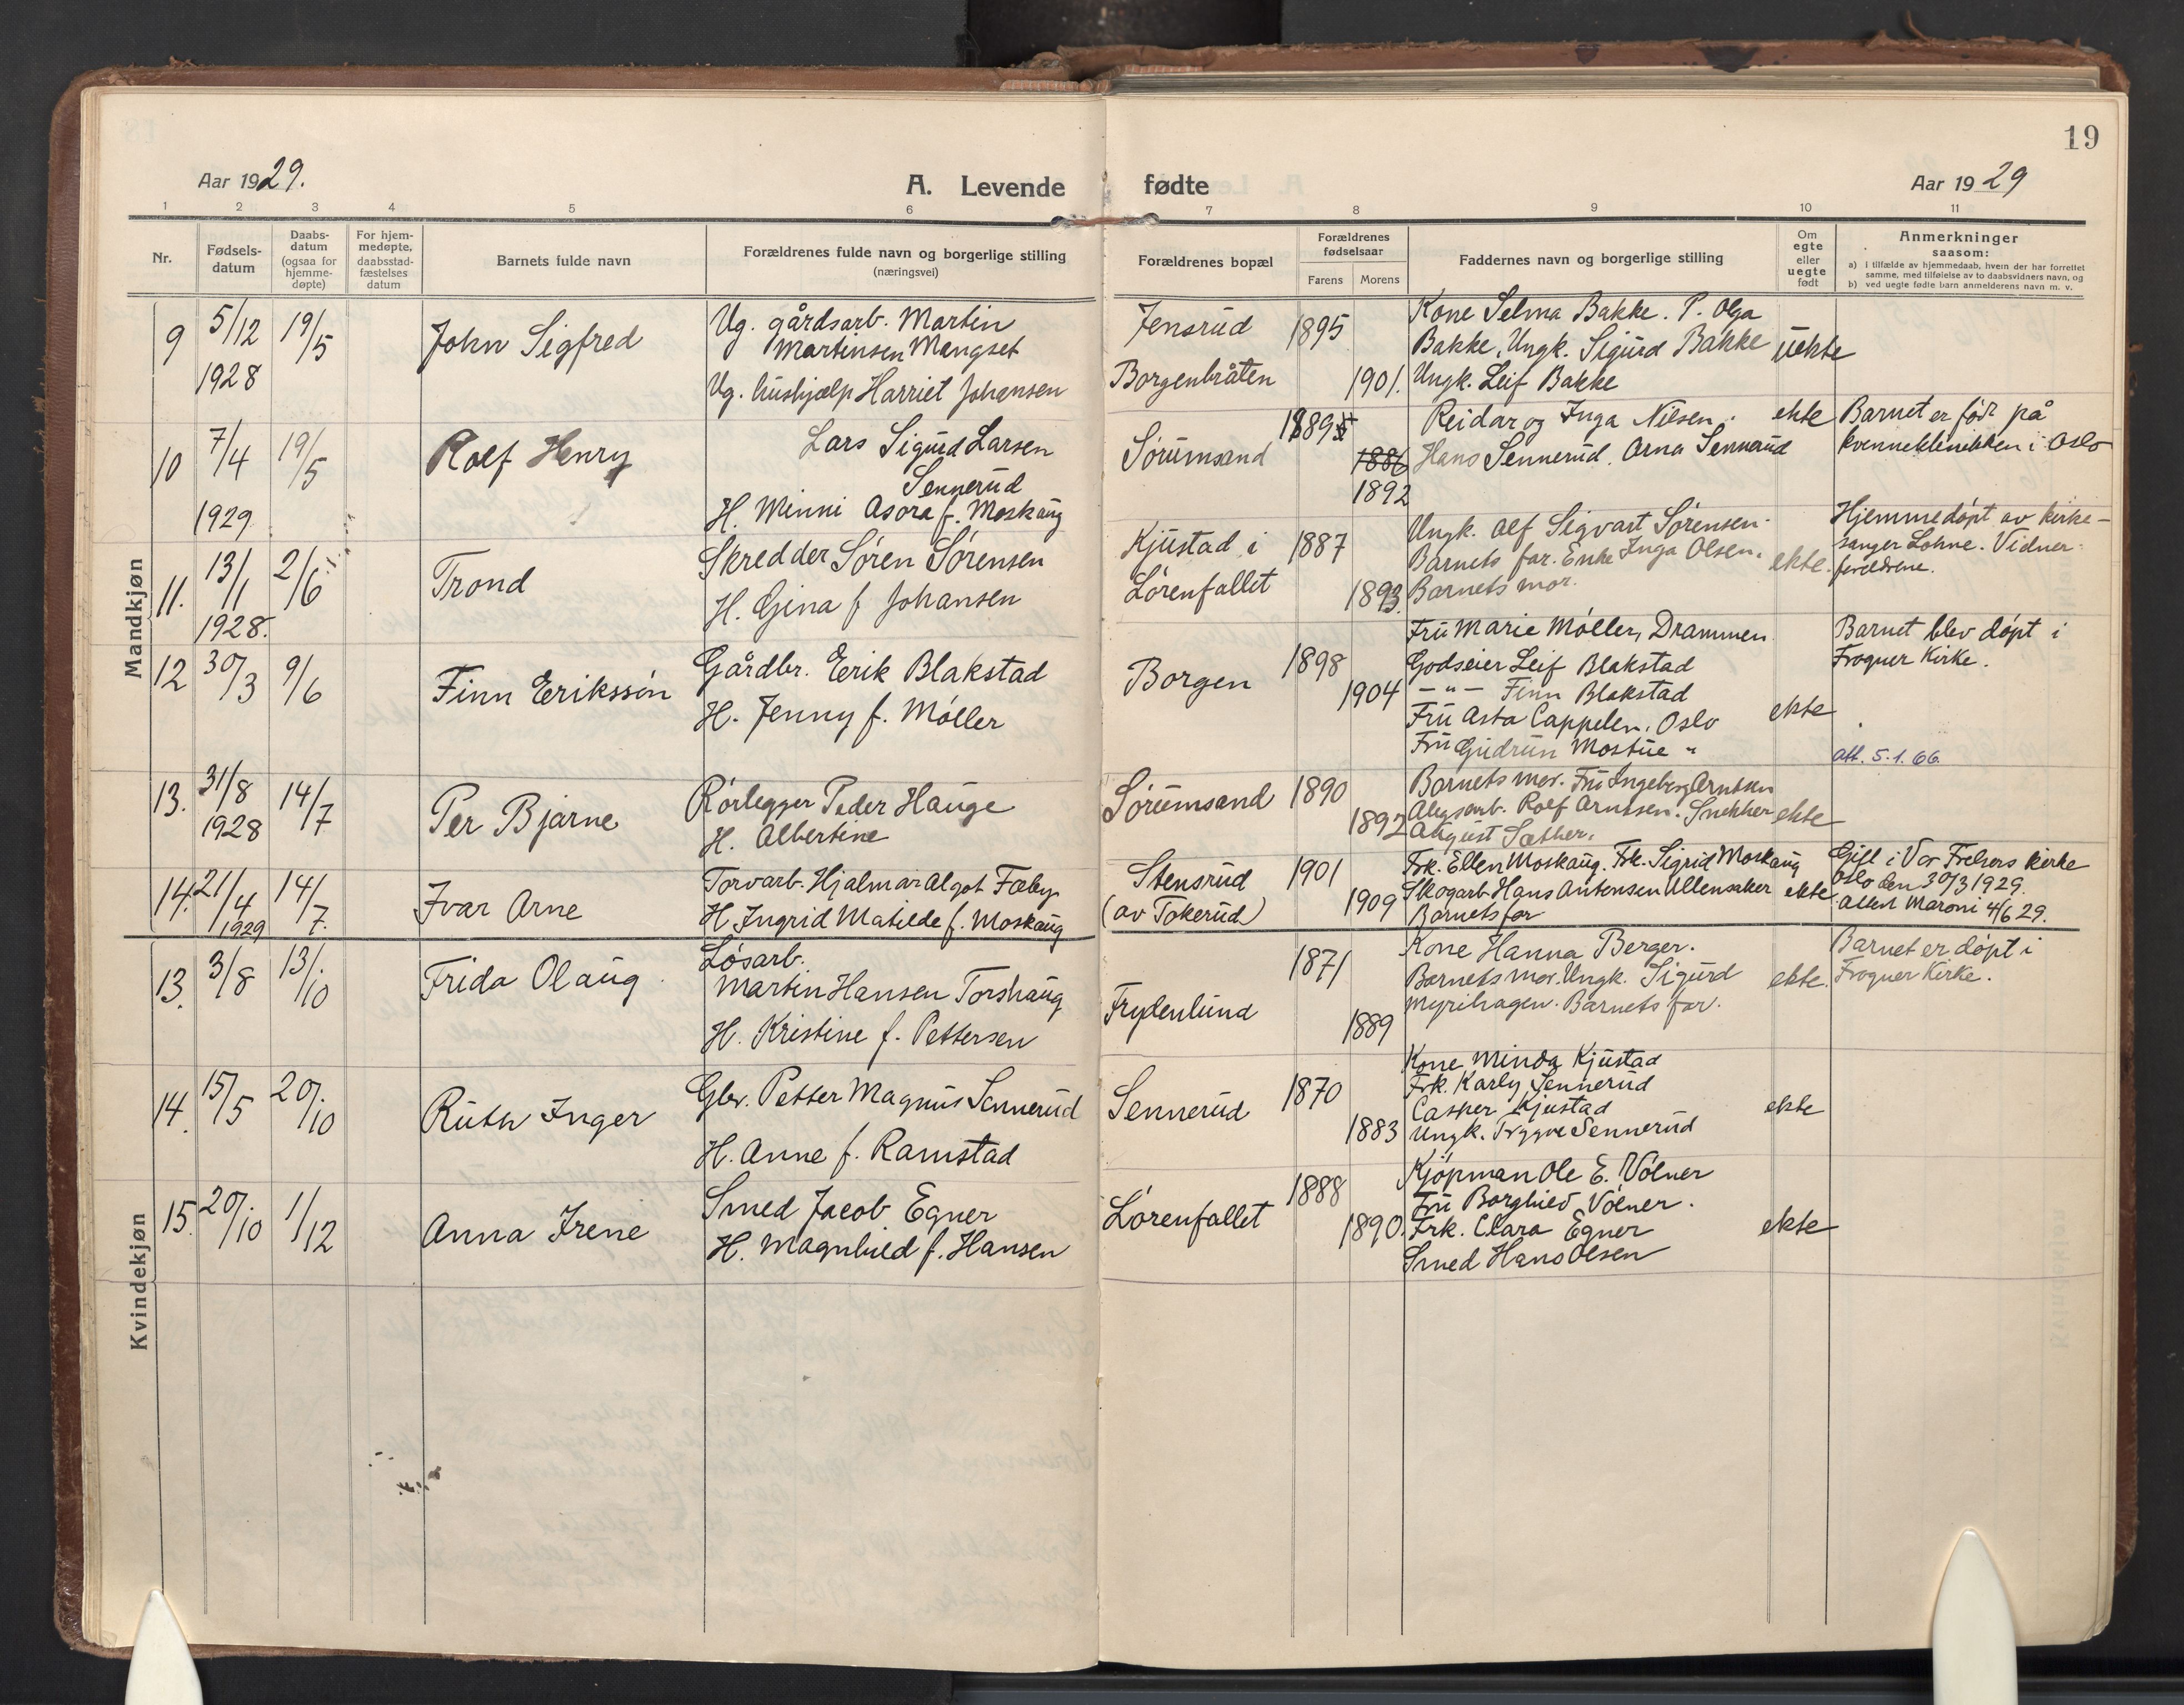 19
Aar 1929.
A. Levende fødte
Aar 1929
1 2 3 4 5 6 7 8 9 10 11
Nr.
Fødsels-
datum
Daabs-
datum
(ogsaa for
hjemme-
døpte)
For hjem-
medøpte,
daabsstad-
fæstelses
datum
Barnets fulde navn
Forældrenes fulde navn og borgerlige stilling
(næringsvei)
Forældrenes bopæl
Forældrenes
fødselsaar
Farens Morens
Faddernes navn og borgerlige stilling
Om
egte
eller
uegte
født
Anmerkninger
saasom:
a) i tilfælde av hjemmedaab, hvem der har forrettet
samme, med tilføielse av to daabsvidners navn, og
b) ved uegte fødte barn anmelderens navn m. v.
Mandkjøn
9
5/12
1928
19/5
John Sigfred
Ug. gårdsarb. Martin
Martinsen Mangset
Ug. hushjælp Harriet Johansen
Jensrud
Borgenbråten
1895
1901.
Kone Selma Bakke. P. Olga
Bakke, Ungk. Sigurd Bakke
Ungk. Leif Bakke
uekte
10
7/4
1929
19/5
Rolf Henry
Lars Sigurd Larsen
Sennerud
H. Minni Asora f. Moskaug
Sørumsand
1895
1886
1892
Reidar og Inga Nilsen.
Hans Sennerud. Arna Sennerud
ekte
Barnet er født på
kvinneklinikken i Oslo
11.
13/1
1928.
2/6
Trond
Skredder Søren Sørensen
H. Gina f Johansen
Kjustad i
Lørenfallet
1887
1893.
Ungk. Alf Sigvart Sørensen.
Barnets far. Enke Inga Olsen.
Barnets mor.
ekte.
Hjemmedøpt av kirke-
sanger Lohne. Vidner:
foreldrene.
12
30/3
9/6
Finn Erikssøn
Gårdbr. Eerik Blakstad
H. Jenny f. Møller
Borgen
1898
1904
Fru Marie Møller, Drammen
Godseier Leif Blakstad
- " - Finn Blakstad
Fru Asta Cappelen, Oslo
Fru Gudrun Mostue "
ekte
Barnet blev døpt i
Frogner Kirke.
att. 5.1.66.
13.
31/8
1928
14/7
Per Bjarne
Rørlegger Peder Hauge
H. Albertine
Sørumsand
1890
1892
Barnets mor. Fru Ingeborg Arntsen
Rolf Arntsen. Snekker
August Sæther.
ekte
14.
21/4
1929
14/7.
Ivar Arne
Torvarb. Hjalmar Algot Foeby
H Ingrid Matilde f. Moskaug
Stensrud
(av Tokerud)
1901
1909
Frk. Ellen Moskaug. Frk. Sigrid Moskaug
Skogarb Hans Antonsen Ullensaker
Barnets far
ekte.
Gift i Vor Frelsers kirke
Oslo den 30/3 1929.
Attest Maroni 4/6 29.
Kvindekjøn
13.
3/8
13/10
Frida Olaug
Løsarb.
Martin Hansen Torshaug
H. Kristine f. Pettersen
Frydenlund
1871
1889
Kone Hanna Berger.
Barnets mor. Ungk. Sigurd
Myrihagen. Barnets far.
ekte.
Barnet er døpt i
Frogner Kirke.
14.
15/5
20/10
Ruth Inger
Gbr. Petter Magnus Sennerud
H. Anne f. Ramstad
Sennerud
1870
1883
Kone Minda Kjustad
Frk. Karly Sennerud
Casper Kjustad
Ungk. Trygve Sennerud
ekte
15.
20/10
1/12
Anna Irene
Smed Jacob Egner
H. Magnhild f. Hansen
Lørenfallet
1888
1890.
Kjøpman Ole E. Vølner
Fru Borghild Vølner.
Frk. Clara Egner
Smed Hans Olsen
ekte